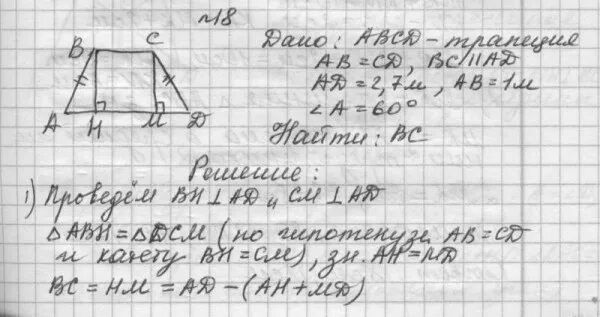 №18
B C
A H M D
Дано: ABCD – трапеция
AB = CD, BC || AD
AD = 2,7м, AB = 1м
∠A = 60°
Найти: BC
Решение:
1) Проведём BH ⊥ AD и CM ⊥ AD
△ABH = △DCM (по гипотенузе AB = CD
и катету BH = CM), зн. AH = MD
BC = HM = AD – (AH + MD)